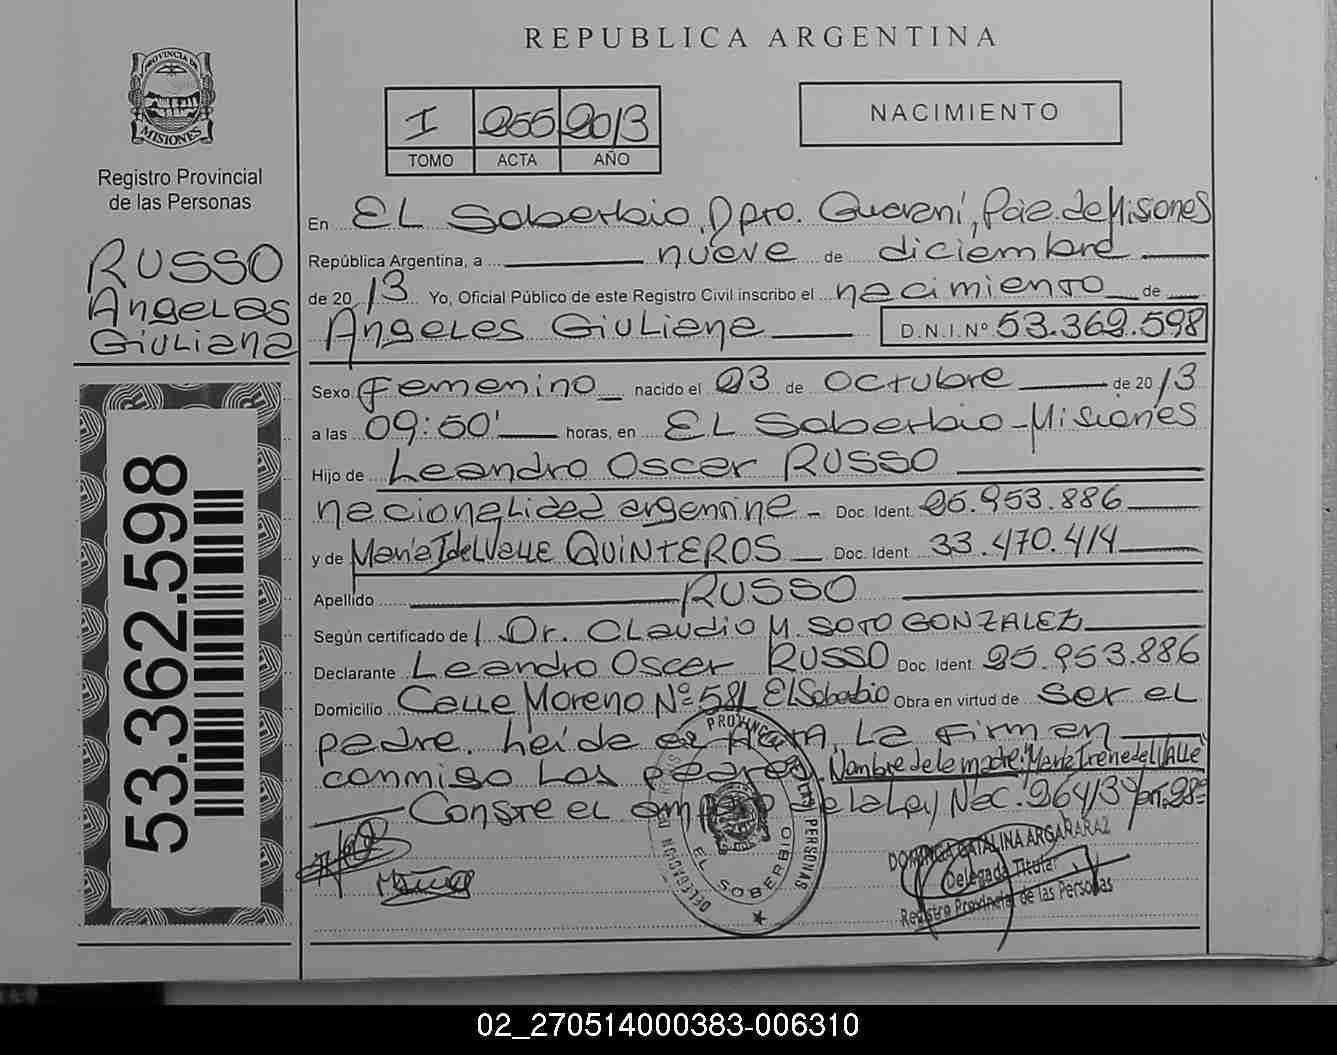 REPUBLICA ARGENTINA
PROVINCIA DE
MISIONES
Registro Provincial
de las Personas
RUSSO
Angeles
Giuliana
53.362.598
I 255 2013
TOMO ACTA AÑO
NACIMIENTO
En EL Soberbio, Dpto. Guaraní, Pcia. de Misiones
República Argentina, a nueve de diciembre
de 20 13 Yo, Oficial Público de este Registro Civil inscribo el nacimiento de
Angeles Giuliana D.N.I.Nº 53.362.598
Sexo Femenino nacido el 23 de Octubre de 20 13
a las 09:50' horas, en EL Soberbio - Misiones
Hijo de Leandro Oscar RUSSO
nacionalidad argentina - Doc. Ident. 25.953.886
y de María I del Valle QUINTEROS Doc. Ident. 33.470.414
Apellido RUSSO
Según certificado de Dr. Claudio M. SOTO GONZALEZ
Declarante Leandro Oscar RUSSO Doc. Ident. 25.953.886
Domicilio Calle Moreno Nº 581 El Soberbio Obra en virtud de ser el
padre. leída el Acta, La Firman
conmigo los padres. Nombre de la madre: "María Irene del VALLE"
Conste el de la Ley Nac. 26413 art. 28º
DELEGACION PROVINCIAL DE LAS PERSONAS
EL SOBERBIO
DOMINGA CATALINA ARGAÑARAZ
Delegada Titular
Registro Provincial de las Personas
02_270514000383-006310